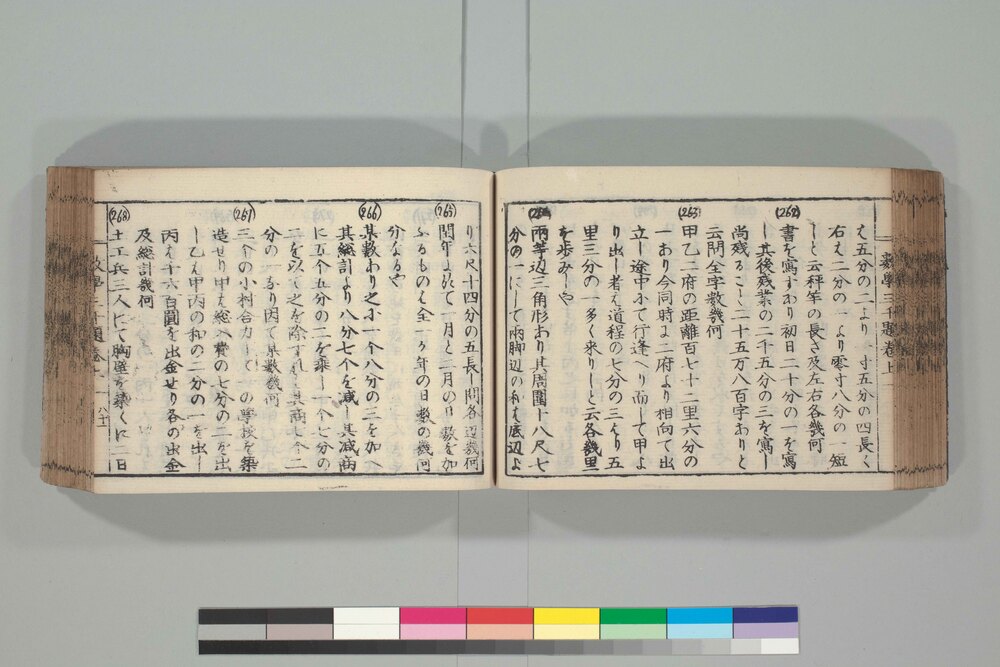 は五分の二より 寸五分の四長く
右は二分の一より零寸八分の一短
しと云秤竿の長さ及左右各幾何
(262) 書を寫すあり初日二十分の一を寫
し其後残業の二十五分の三を寫し
尚残ること二十五万八百字ありと
云問全字数幾何
(263) 甲乙二府の距離百七十二里六分の
一あり今同時に二府より相向て出
立し途中にて行逢へり而して甲よ
り出し者は道程の七分の三より五
里三分の一多く来りしと云各幾里
を歩みしや
(264) 兩等辺三角形あり其周圍十八尺七
分の一にして兩脚辺の和は底辺よ
り六尺十四分の五長し問各辺幾何
(265) 閏年に於て一月と二月の日数を加
ふるものは全一ヶ年の日数の幾何
分なるや
(266) 某数あり之に一个八分の三を加へ
其総計より八分七个を減し其減餘
に五个五分の二を乘し十个七分の
二を以て之を除すれは其商七个二
分の一なり因て某数幾何
(267) 三个の小村合力して一の學校を築
造せり甲は総入費の七分の二を出
し乙は甲丙の和の二分の一を出し
丙は十六百圓を出金せり各の出金
及総計幾何
(268) 土工兵三人にて胸壁を築くに二日
數學三千題卷上